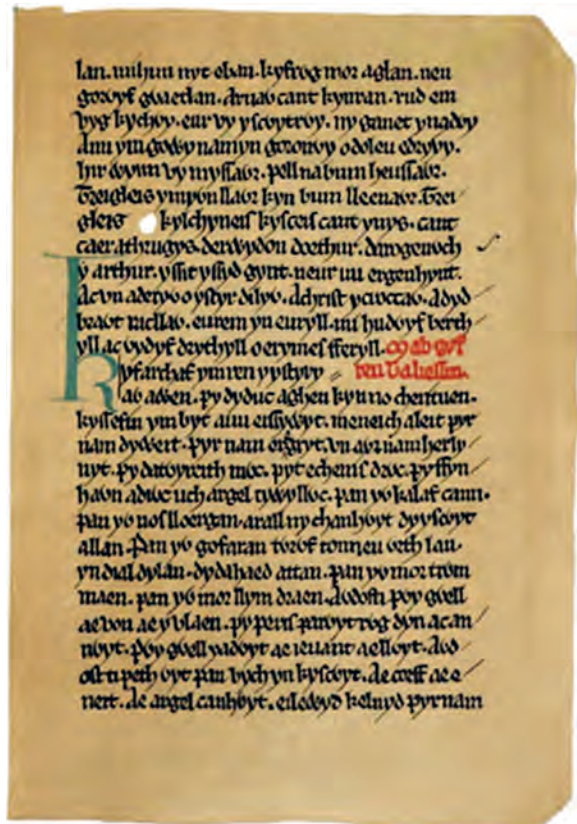 lan. mi hun nyt eban. kyfrỽg mor aglan. neu
gorỽyf gỽaetlan. Arnaỽ cant kynran. rud em
vyg kychỽy. eur vy yscỽytrỽy. ny ganet ynadỽy
Auu ym gỽy namyn goronỽy odoleu edryỽy.
hir ỽynn vy myssaỽr. pell nabum heussaỽr.
Treigleis ymyỽn llaỽr kyn bum lleenaỽr. Trei
gleis kylchyneis kysceis cant ynys. cant
caer athrugys. derỽydon doethur. darogenỽch
y arthur. yssit yssyd gynt. neur mi ergenhynt.
Ac vn aderyỽ o ystyr dilyỽ. Achrist ycroccaỽ. Adyd
braỽt racllaỽ. eurem yn euryll. mi hudỽyf berth
yll ac ydỽyf drythyll o erymes fferyll. Mab gyf
reu Taliessin.
Kyfarchaf ym ren yystyryaỽ
ab aỽen. py dyduc aghen kyn no cherituen.
kyssefin ym byt auu eissyỽyt. meneich aleit pyr
nam dyỽeit. pyr nam eregyt. vn aỽr nam herly
nyt. py datỽyreith mỽc. pyt echenis drỽc. py ffyn
haỽn adiỽc uch argel tywyllỽc. pan yỽ kalaf cann.
pan yỽ nos lloergan. arall ny chanhỽyt dyyscỽyt
allan. Pan yỽ gofaran tỽrỽf tonneu ỽrth lan.
yn dial dylan. dydahaed attan. pan yỽ mor trỽm
maen. pan yỽ mor llym draen. aỽdosti pỽy gỽell
ae von ae yvlaen. py peris parỽyt rỽg dyn ac an
nỽyt. pỽy gỽell y adỽyt ae ieuanc ae llỽyt. Aỽd
ost ti peth ỽyt pan vych yn kyscỽyt. Ae corff ae e
neit. Ae argel canhỽyt. eilewyd keluyd pyr nam